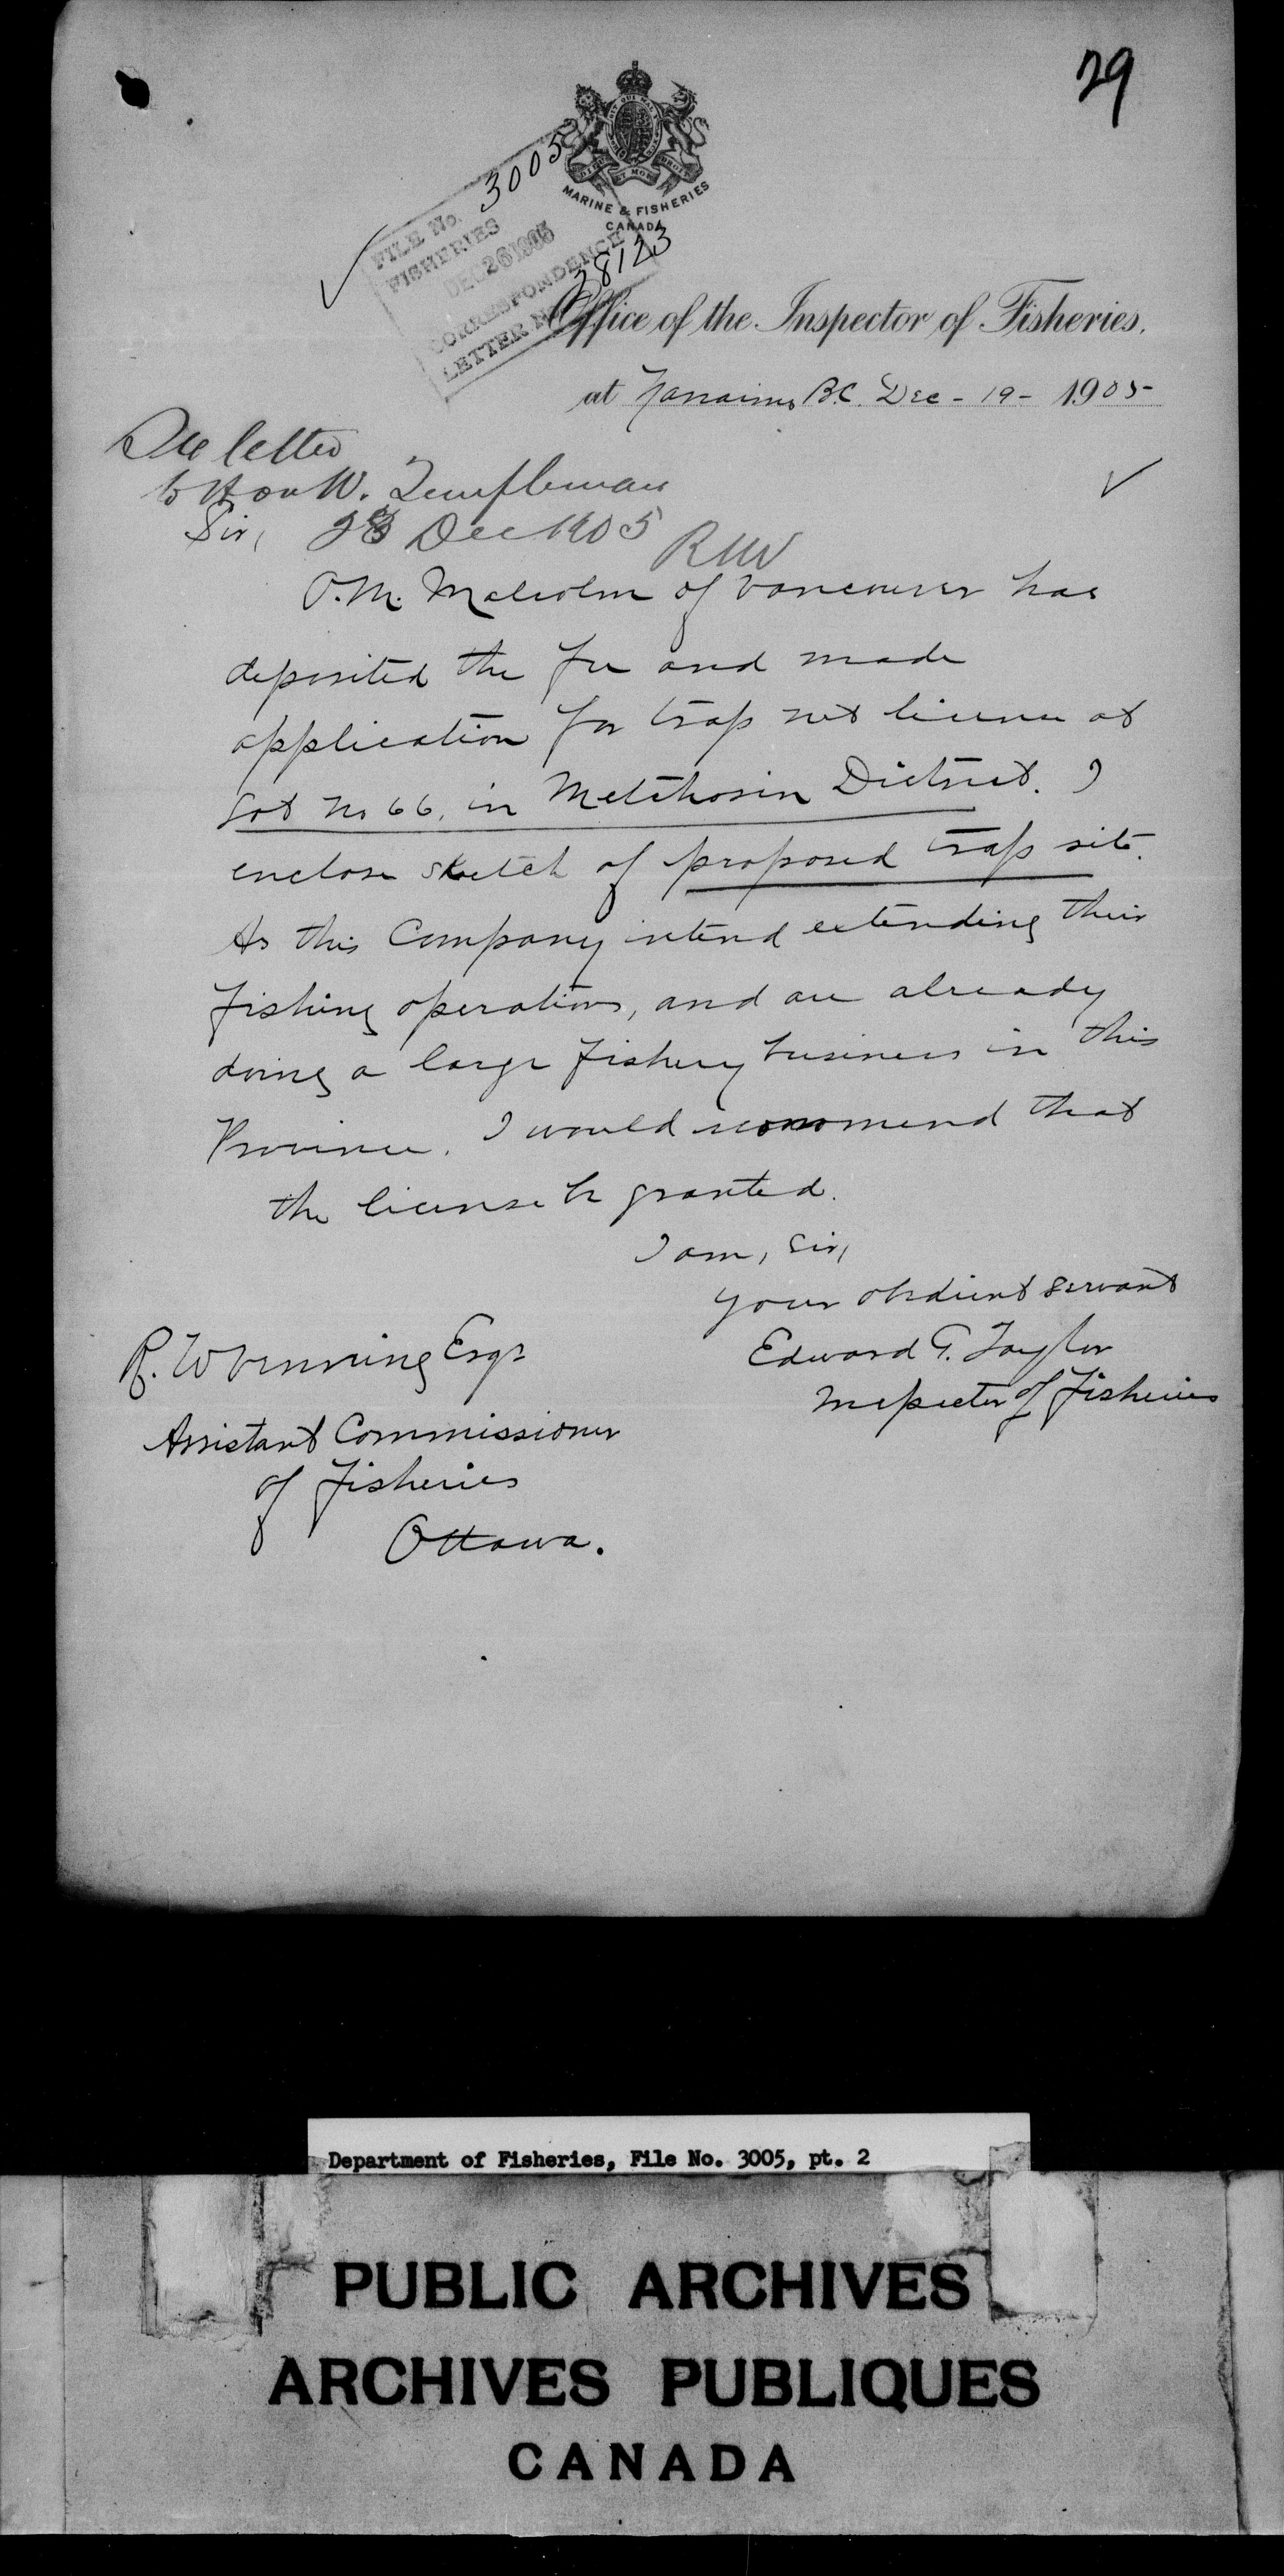 29
HONI SOIT QUI MAL
DIEU ET MON DROIT
MARINE & FISHERIES
CANADA
FILE No. 3005
FISHERIES
DEC 26 1905
CORRESPONDENCE
LETTER No 38123
Office of the Inspector of Fisheries.
at Nanaimo B.C. Dec - 19 - 1905
See letter
to Hon W. Templeman
28 Dec 1905
RNV
Sir,
O.M. Malcolm of Vancouver has
deposited the fee and made
application for trap net license at
Lot No 66, in Metchosin District. I
enclose sketch of proposed trap site.
As this Company intend extending their
fishing operations, and are already
doing a large fishery business in this
Province. I would recommend that
the license be granted.
I am, Sir,
your obedient servant
Edward G. Taylor
Inspector of Fisheries
R. N Venning Esqr
Assistant Commissioner
of Fisheries
Ottawa.
Department of Fisheries, File No. 3005, pt. 2
PUBLIC ARCHIVES
ARCHIVES PUBLIQUES
CANADA